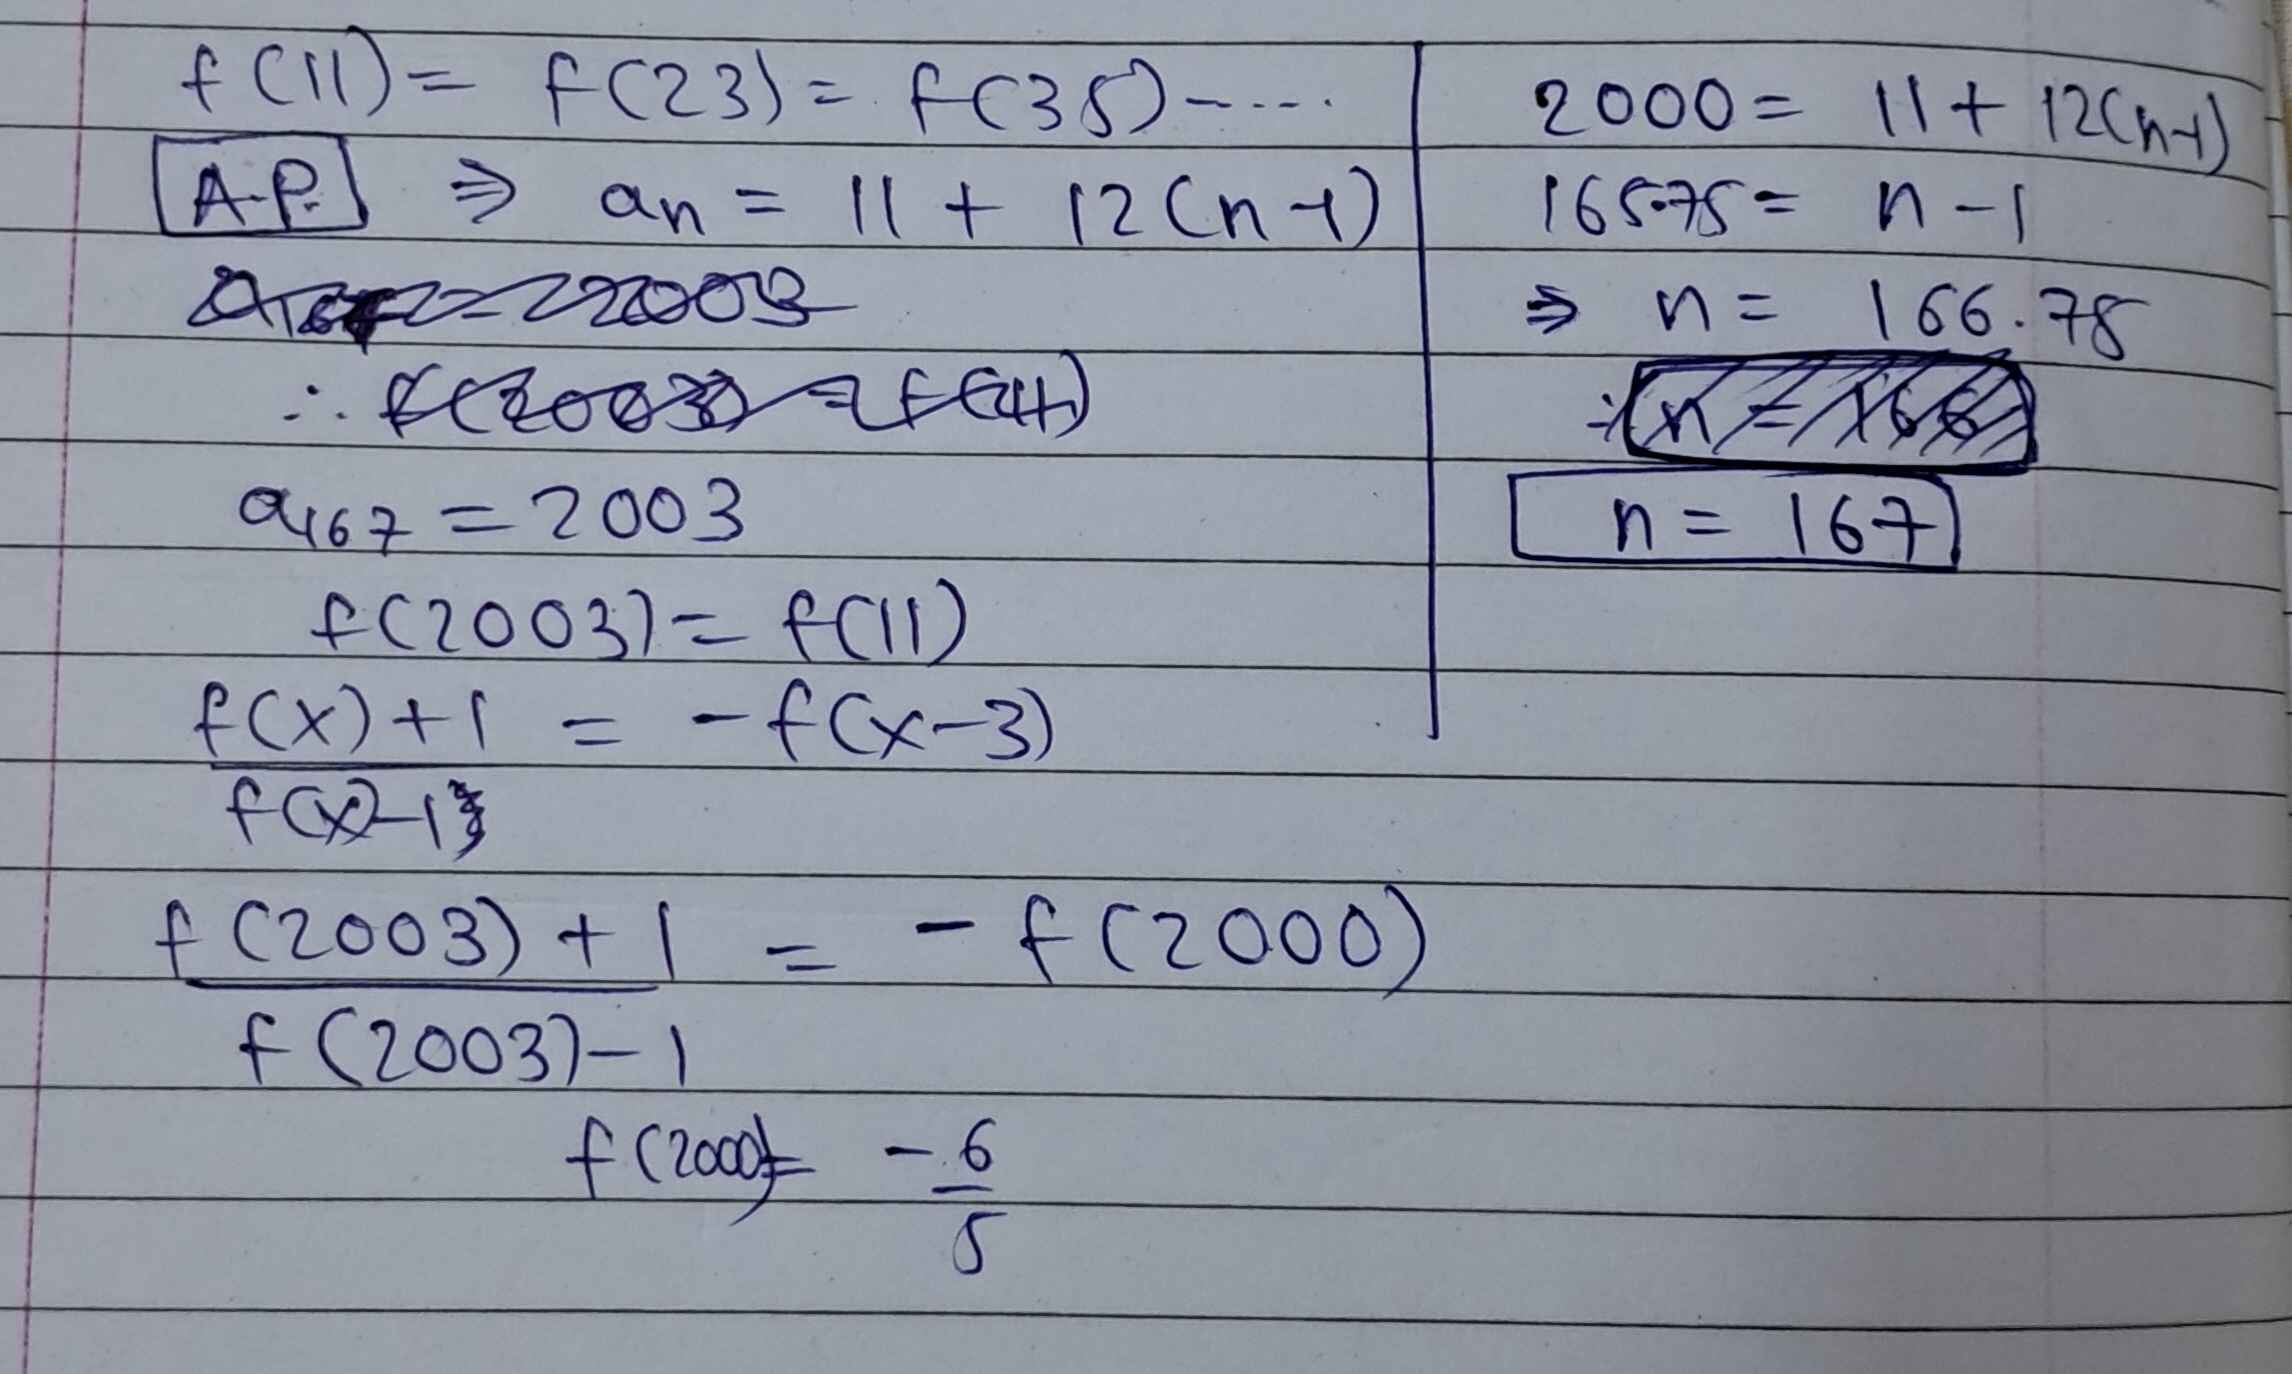 f(11) = f(23) = f(35) -----
A.P. ⇒ an = 11 + 12(n-1)
a167 = 2003
f(2003) = f(11)
f(x)+1 = -f(x-3)
f(x)-1
f(2003)+1 = -f(2000)
f(2003)-1
f(2000) = -6
5
2000 = 11 + 12(n-1)
165.75 = n-1
⇒ n = 166.75
n = 167